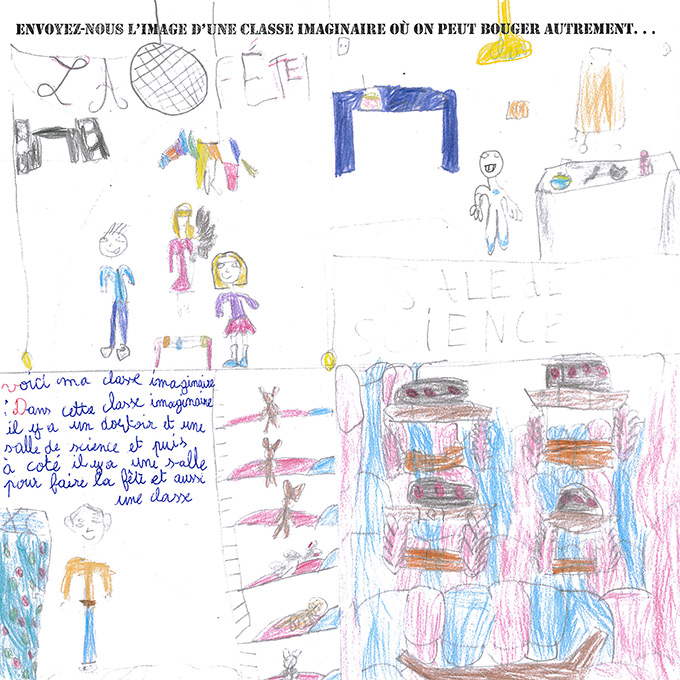 ENVOYEZ-NOUS L'IMAGE D'UNE CLASSE IMAGINAIRE OÙ ON PEUT BOUGER AUTREMENT...
LA FÊTE
SALE de
SCIENCE
voici ma classe imaginaire
: Dans cette classe imaginaire
il y a un dortoir et une
salle de science et puis
à coté il y a une salle
pour faire la fête et aussi
une classe